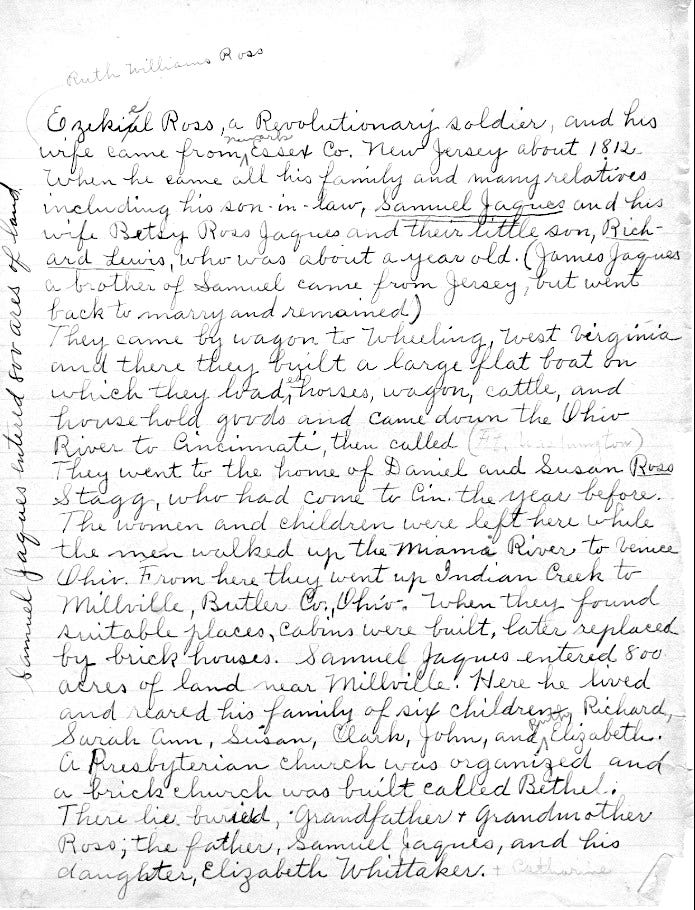 Ruth Williams Ross
Ezikial Ross, a Revolutionary soldier, and his
wife came from Newark Essex Co. New Jersey about 1812.
When he came all his family and many relatives
including his son-in-law, Samuel Jaques and his
wife Betsy Ross Jaques and their little son, Rich-
ard Lewis, who was about a year old. (James Jaques
a brother of Samuel came from Jersey, but went
back to marry and remained)
They came by wagon to Wheeling, West Virginia
and there they built a large flat boat on
which they loaded horses, wagon, cattle, and
household goods and came down the Ohio
River to Cincinnati, then called (Ft. Washington)
They went to the home of Daniel and Susan Ross
Stagg, who had come to Cin. the year before.
The women and children were left here while
the men walked up the Miama River to Venice
Ohio. From here they went up Indian Creek to
Millville, Butler Co., Ohio. When they found
suitable places, cabins were built, later replaced
by brick houses. Samuel Jaques entered 800
acres of land near Millville. Here he lived
and reared his family of six children, Richard,
Sarah Ann, Susan, Clark, John, and Ruth Elizabeth.
A Presbyterian church was organized and
a brick church was built called Bethel.
There lie buried, Grandfather + Grandmother
Ross; the father, Samuel Jaques, and his
daughter, Elizabeth Whittaker. + Catharine
Samuel Jaques entered 800 ares of land